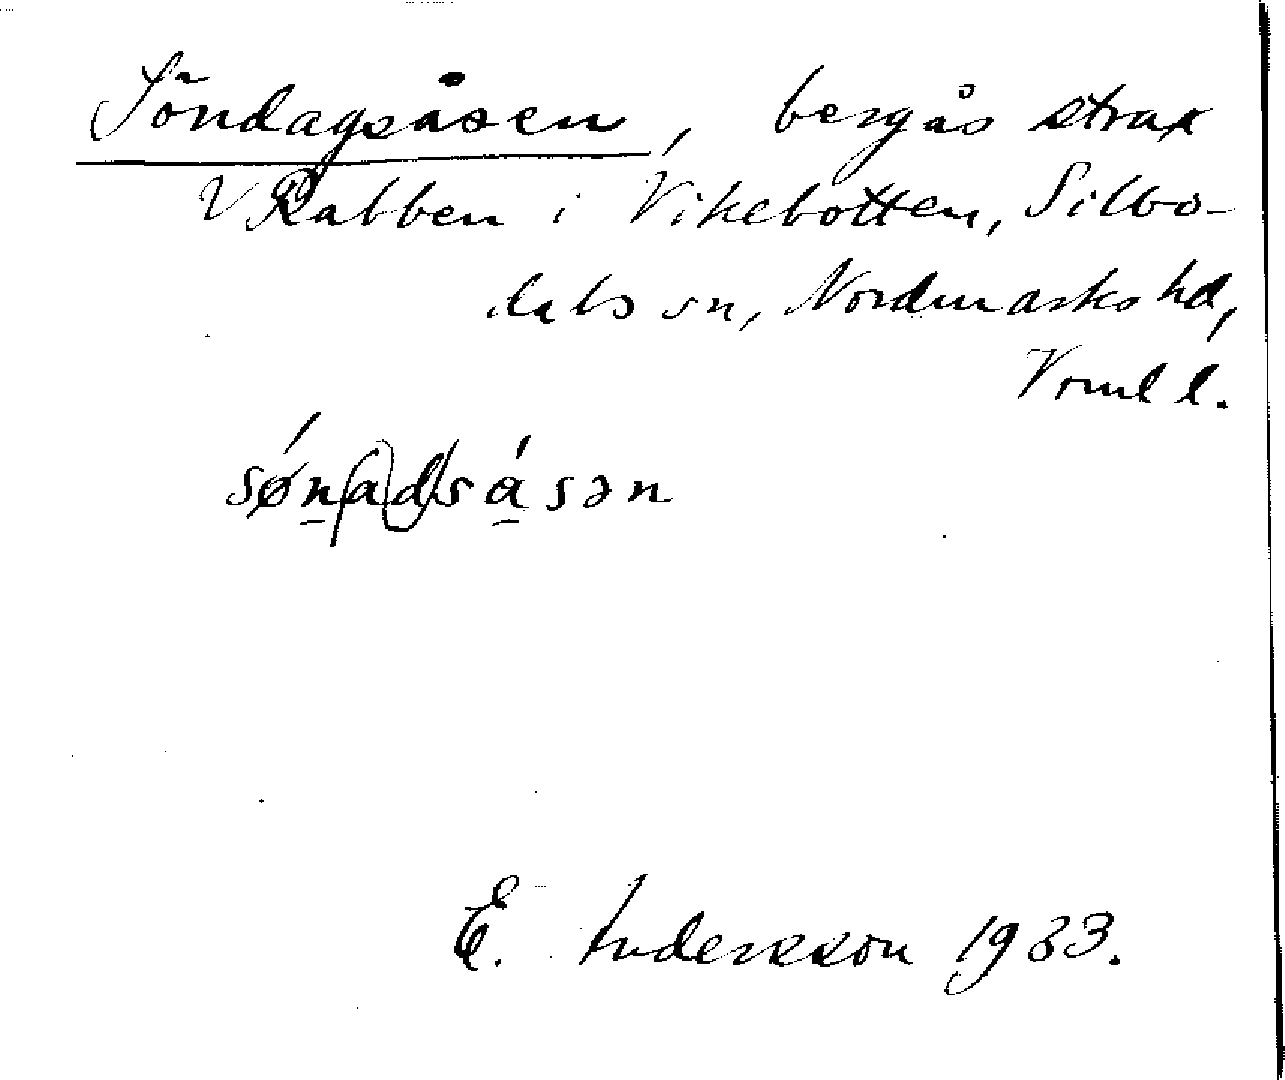 Söndagsåsen, bergås strax
V Rabben i Vikebotten, Silbo-
dals sn, Nordmarks hd,
Vrml l.
søn(a)(d)såsən
E. Andersson 1933.